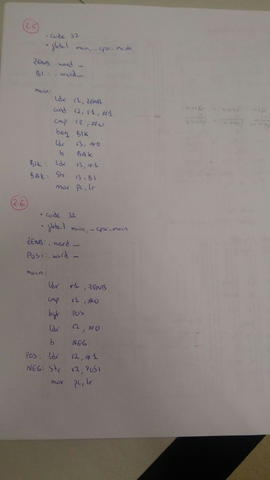 2.5
. code 32
. global main, _cpsr_mask
ZENB: .word _
B1: .word _
main:
ldr r1, ZENB
and r2, r1, #1
cmp r2, #0
beq BIK
ldr r3, #0
b BAK
BIK: ldr r3, #1
BAK: str r3, B1
mov pc, lr
2.6
. code 32
. global main, _cpsr_mask
ZENB: .word _
POS1: .word _
main:
ldr r1, ZENB
cmp r1, #0
bgt POS
ldr r2, #0
b NEG
POS: ldr r2, #1
NEG: str r2, POS1
mov pc, lr